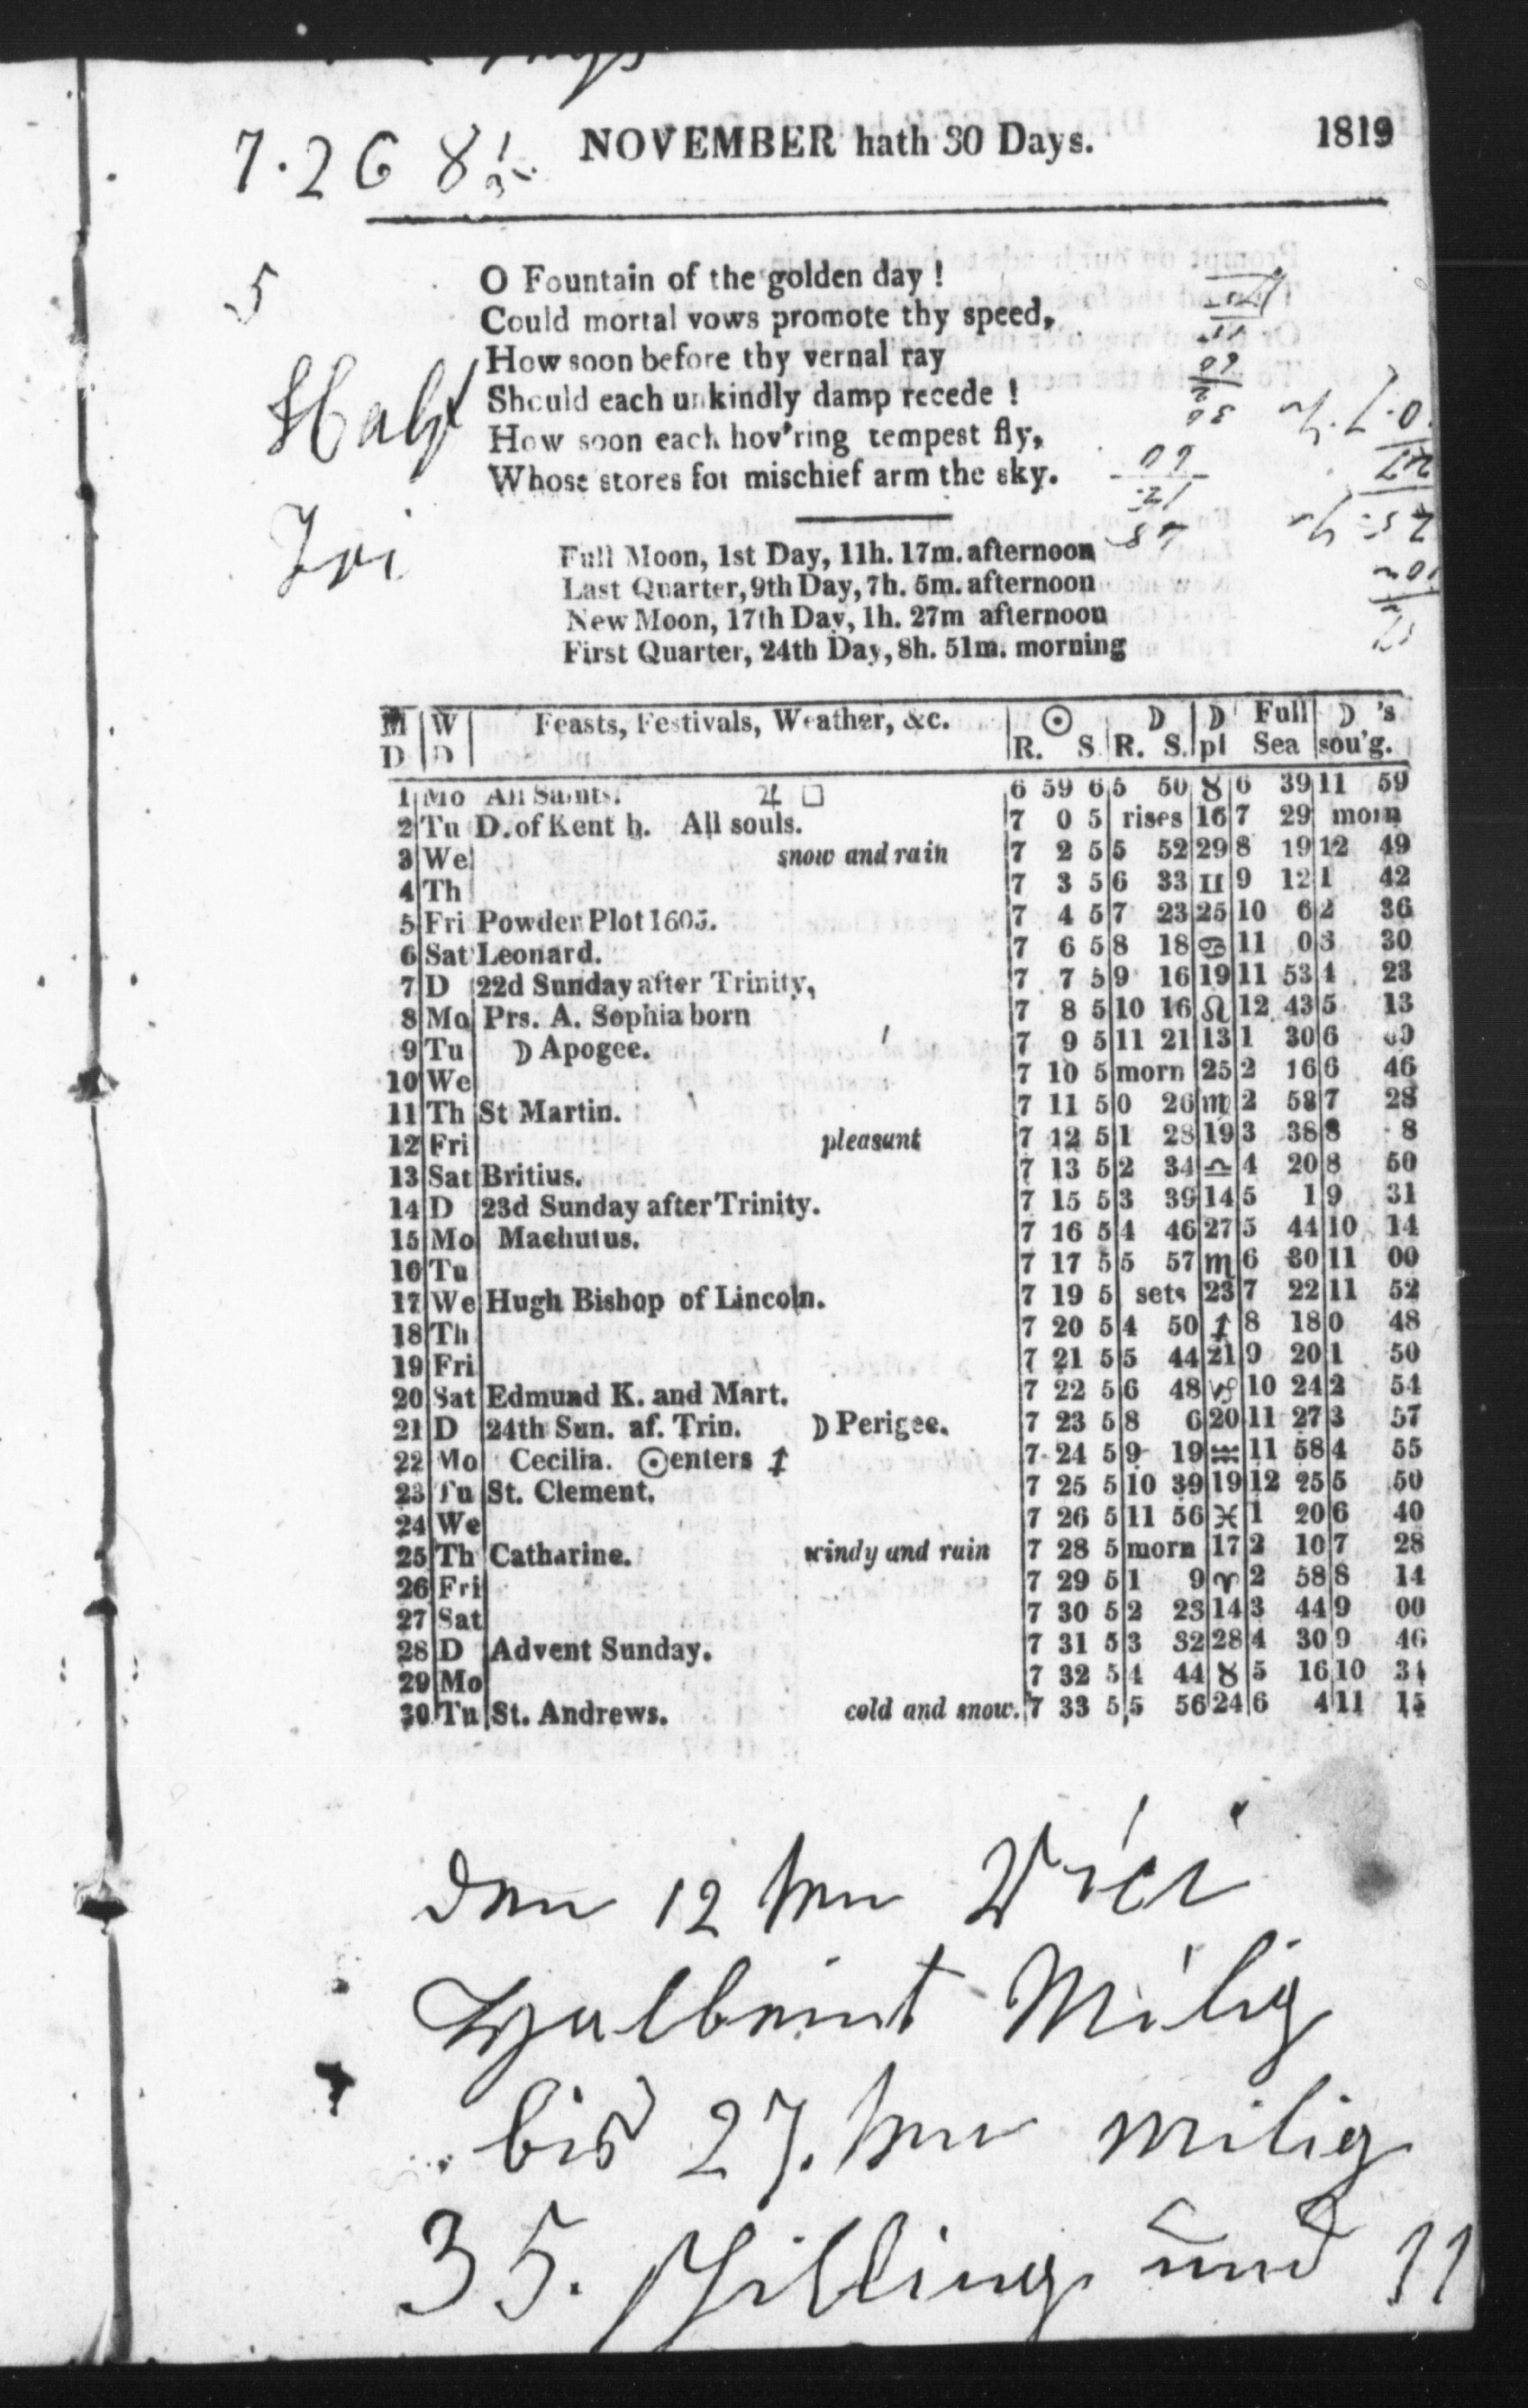 7.26 8 1/2
NOVEMBER hath 30 Days. 1819
5
O Fountain of the golden day !
Could mortal vows promote thy speed,
How soon before thy vernal ray
Should each unkindly damp recede !
How soon each hov'ring tempest fly,
Whose stores for mischief arm the sky.
Full Moon, 1st Day, 11h. 17m. afternoon
Last Quarter, 9th Day, 7h. 5m. afternoon
New Moon, 17th Day, 1h. 27m afternoon
First Quarter, 24th Day, 8h. 51m. morning
M W Feasts, Festivals, Weather, &c. ☉ ☽ ☽ Full ☽ 's
D D R. S. R. S. pl Sea sou'g.
1 Mo All Saints. ♃ □ 6 59 6 5 50 ♉ 6 39 11 59
2 Tu D. of Kent b. All souls. 7 0 5 rises 16 7 29 morn
3 We snow and rain 7 2 5 5 52 29 8 19 12 49
4 Th 7 3 5 6 33 II 9 12 1 42
5 Fri Powder Plot 1605. 7 4 5 7 23 25 10 6 2 36
6 Sat Leonard. 7 6 5 8 18 ♋ 11 0 3 30
7 D 22d Sunday after Trinity, 7 7 5 9 16 19 11 53 4 23
8 Mo Prs. A. Sophia born 7 8 5 10 16 ♌ 12 43 5 13
9 Tu ☽ Apogee. 7 9 5 11 21 13 1 30 6
10 We 7 10 5 morn 25 2 16 6 46
11 Th St Martin. 7 11 5 0 26 ♍ 2 58 7 28
12 Fri pleasant 7 12 5 1 28 19 3 38 8 8
13 Sat Britius. 7 13 5 2 34 ♎ 4 20 8 50
14 D 23d Sunday after Trinity. 7 15 5 3 39 14 5 1 9 31
15 Mo Machutus. 7 16 5 4 46 27 5 44 10 14
16 Tu 7 17 5 5 57 ♏ 6 30 11 00
17 We Hugh Bishop of Lincoln. 7 19 5 sets 23 7 22 11 52
18 Th 7 20 5 4 50 ♐ 8 18 0 48
19 Fri 7 21 5 5 44 21 9 20 1 50
20 Sat Edmund K. and Mart. 7 22 5 6 48 ♑ 10 24 2 54
21 D 24th Sun. af. Trin. ☽ Perigee. 7 23 5 8 6 20 11 27 3 57
22 Mo Cecilia. ☉ enters ♐ 7 24 5 9 19 ♒ 11 58 4 55
23 Tu St. Clement. 7 25 5 10 39 19 12 25 5 50
24 We 7 26 5 11 56 ♓ 1 20 6 40
25 Th Catharine. windy and rain 7 28 5 morn 17 2 10 7 28
26 Fri 7 29 5 1 9 ♈ 2 58 8 14
27 Sat 7 30 5 2 23 14 3 44 9 00
28 D Advent Sunday. 7 31 5 3 32 28 4 30 9 46
29 Mo 7 32 5 4 44 ♉ 5 16 10 34
30 Tu St. Andrews. cold and snow. 7 33 5 5 56 24 6 4 11 15
den 12 ten
Milig
bis 27. ten milig
35. schilling und 11